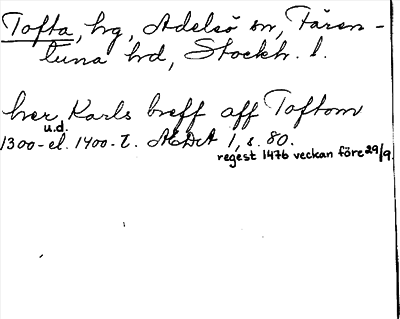 Tofta, hg, Adelsö sn, Fären-
tuna hd, Stockh. l.
her Karls breff aff Toftom
u.d.
1300- el. 1400-t. ÄSvDA 1, s. 80.
regest 1476 veckan före 29/9.